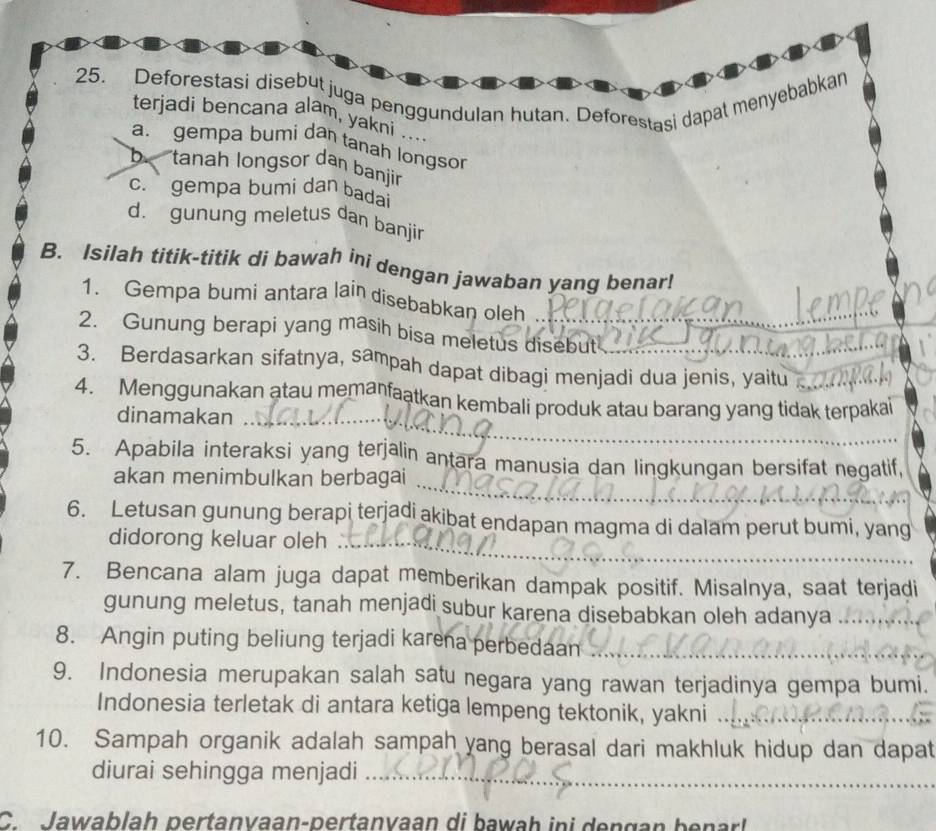 25. Deforestasi disebut juga penggundulan hutan. Deforestasi dapat menyebabkan
terjadi bencana alam, yakni ....
a. gempa bumi dan tanah longsor
b. tanah longsor dan banjir
c. gempa bumi dan badai
d. gunung meletus dan banjir
B. Isilah titik-titik di bawah ini dengan jawaban yang benar!
1. Gempa bumi antara lain disebabkan oleh pergerakan lempeng
2. Gunung berapi yang masih bisa meletus disebut gunung berap
3. Berdasarkan sifatnya, sampah dapat dibagi menjadi dua jenis, yaitu sampah
4. Menggunakan atau memanfaatkan kembali produk atau barang yang tidak terpakai
dinamakan daur ulang
5. Apabila interaksi yang terjalin antara manusia dan lingkungan bersifat negatif,
akan menimbulkan berbagai masalah lingkungan
6. Letusan gunung berapi terjadi akibat endapan magma di dalam perut bumi, yang
didorong keluar oleh gas
7. Bencana alam juga dapat memberikan dampak positif. Misalnya, saat terjadi
gunung meletus, tanah menjadi subur karena disebabkan oleh adanya
8. Angin puting beliung terjadi karena perbedaan
9. Indonesia merupakan salah satu negara yang rawan terjadinya gempa bumi.
Indonesia terletak di antara ketiga lempeng tektonik, yakni
10. Sampah organik adalah sampah yang berasal dari makhluk hidup dan dapat
diurai sehingga menjadi kompos
C. Jawablah pertanyaan-pertanyaan di bawah ini dengan benar!